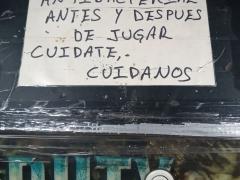 ANTIBACTERIAL
ANTES Y DESPUES
DE JUGAR
CUIDATE,
CUIDANOS
DUTY